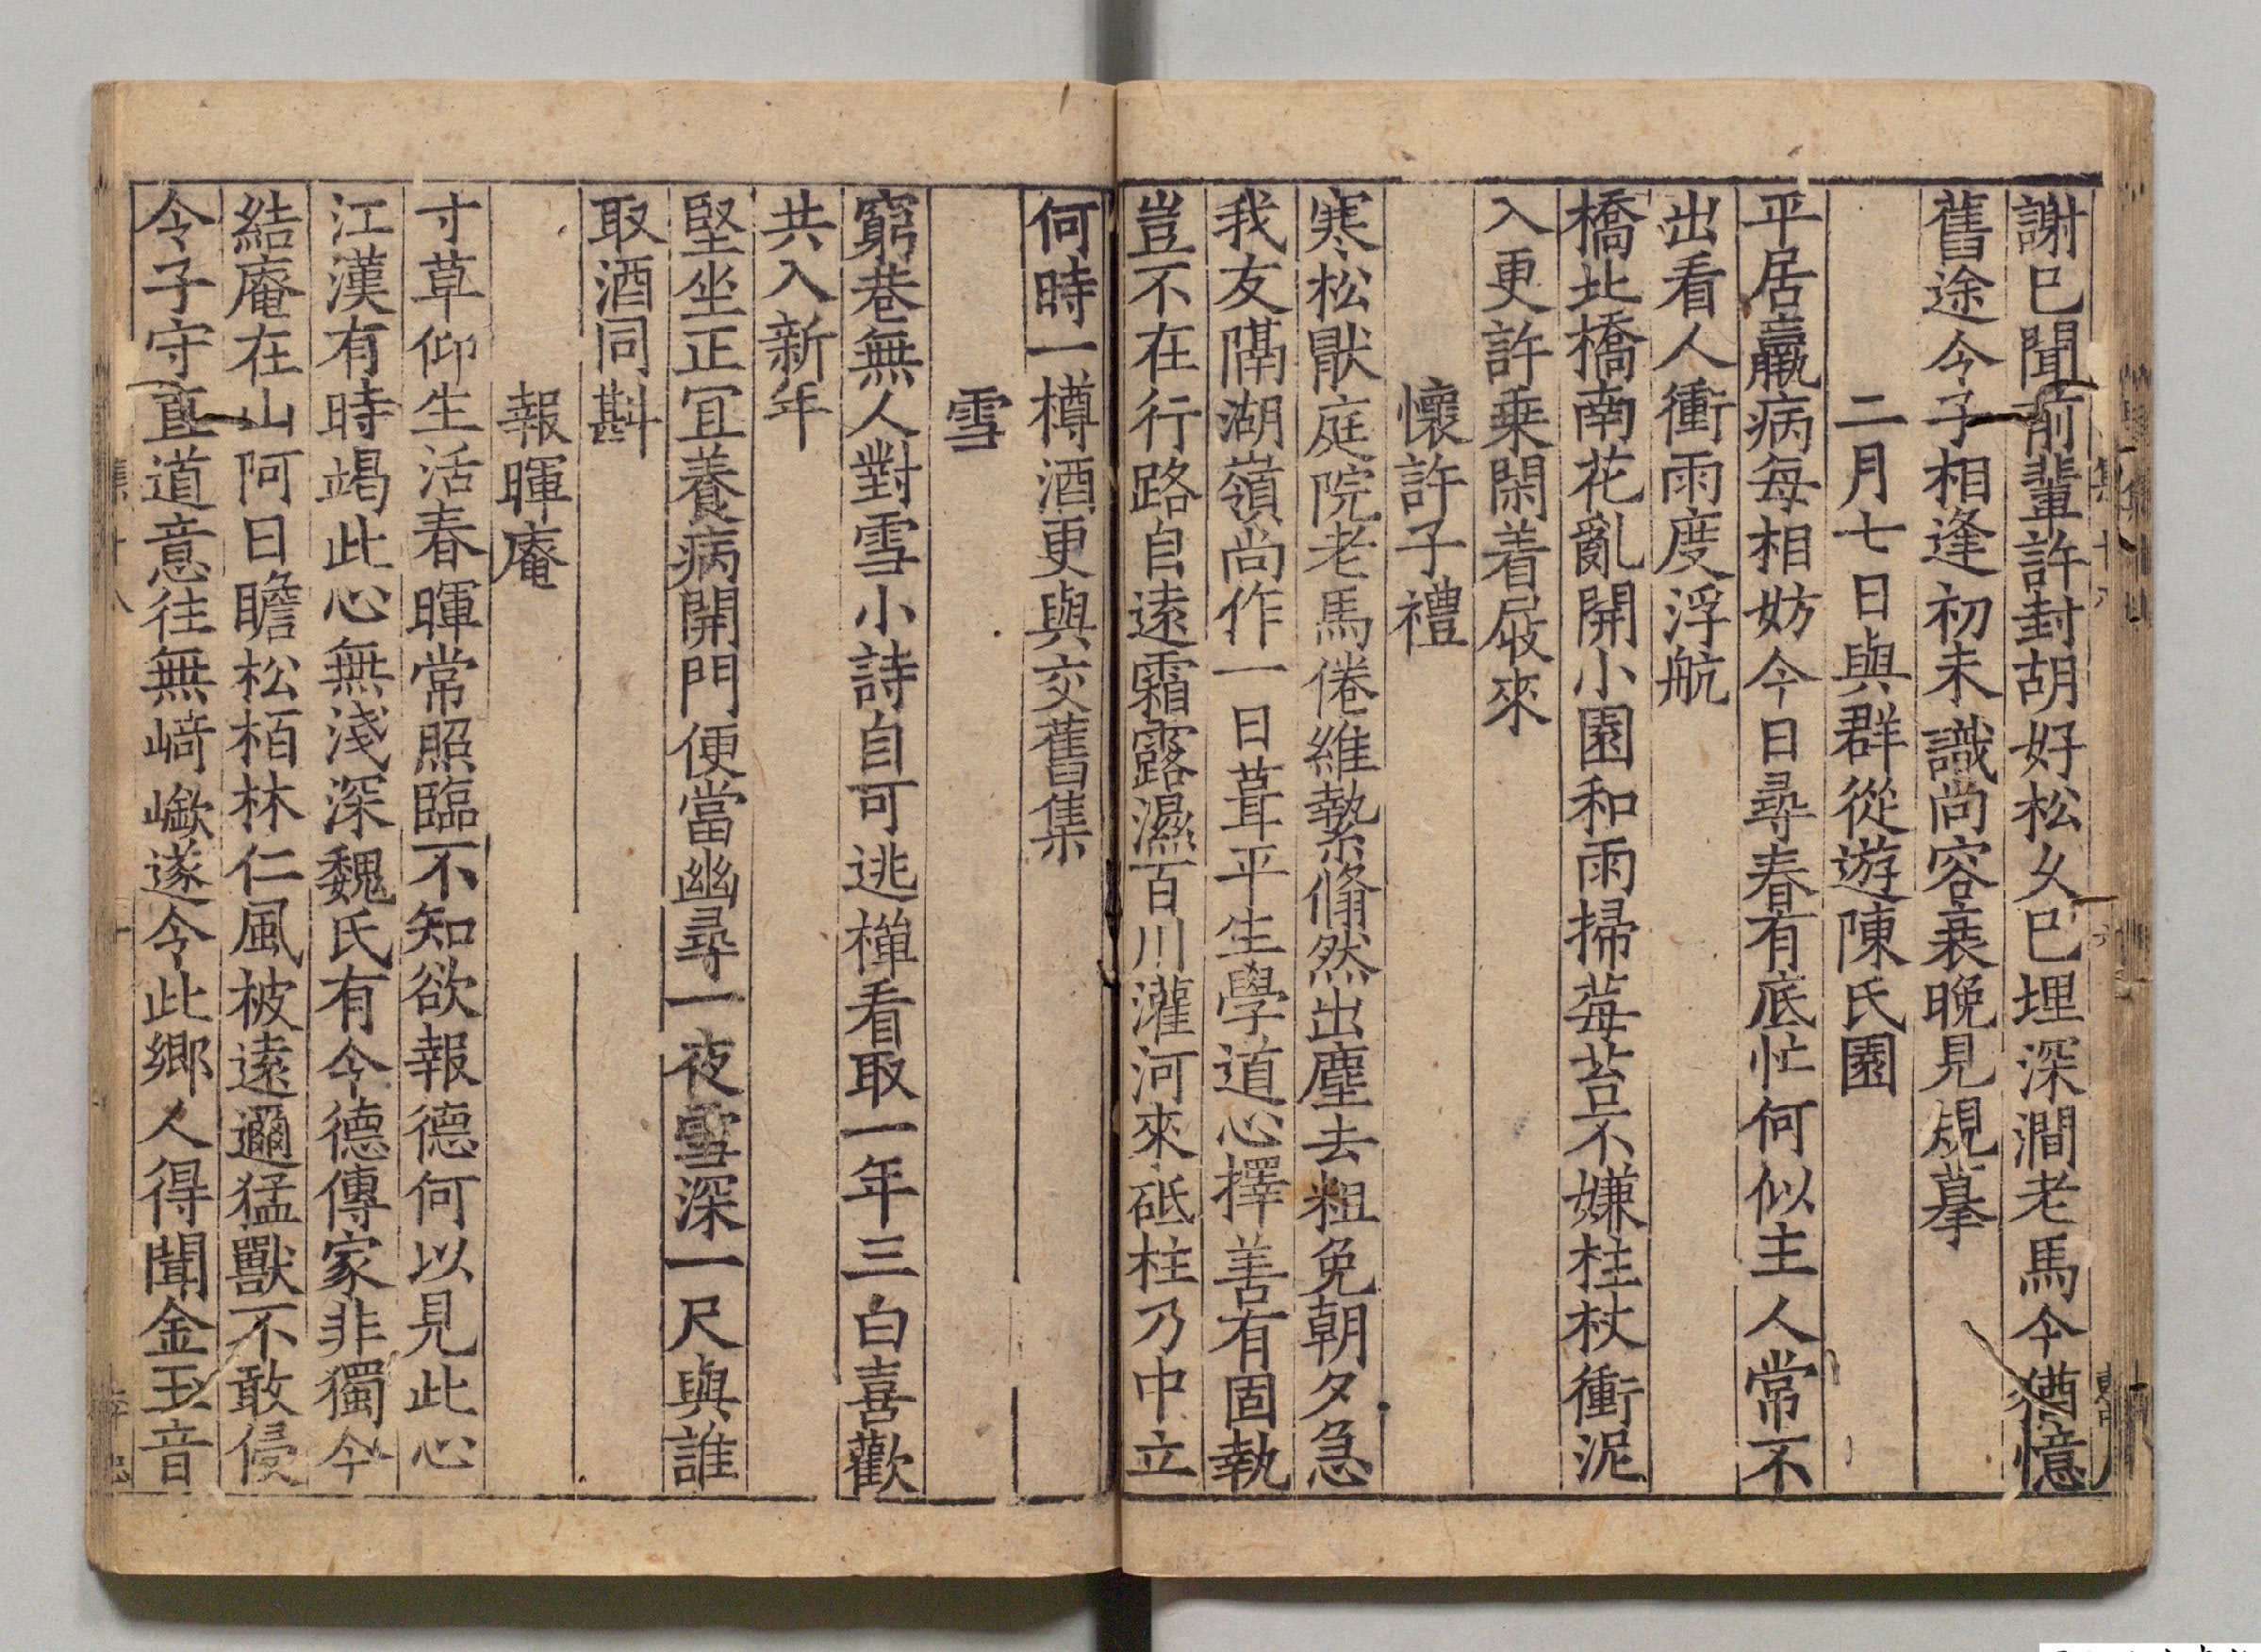 謝已聞前輩許封胡好松乆已埋深澗老馬今猶憶
舊途今子相逢初未識尚容衰晚見規摹
二月七日與群從遊陳氏園
平居羸病每相妨今日尋春有底忙何似主人常不
出看人衝雨度浮航
橋北橋南花亂開小園和雨掃莓苔不嫌柱杖衝泥
入更許乗閑着屐來
懷許子禮
寒松猒庭院老馬倦維縶翛然出塵去粗免朝夕急
我友隔湖嶺尚作一日葺平生學道心擇善有固執
豈不在行路自逺霜露濕百川灌河來砥柱乃中立
何時一樽酒更與交舊集
雪
窮巷無人對雪小詩自可逃禪看取一年三白喜歡
共入新年
堅坐正冝養病開門便當幽尋一夜雪深一尺與誰
取酒同斟
報暉庵
寸草仰生活春暉常照臨不知欲報德何以見此心
江漢有時竭此心無淺深魏氏有今德傳家非獨今
結庵在山阿日瞻松栢林仁風被逺邇猛獸不敢侵
令子守直道意往無﨑嶔遂令此鄉人得聞金玉音